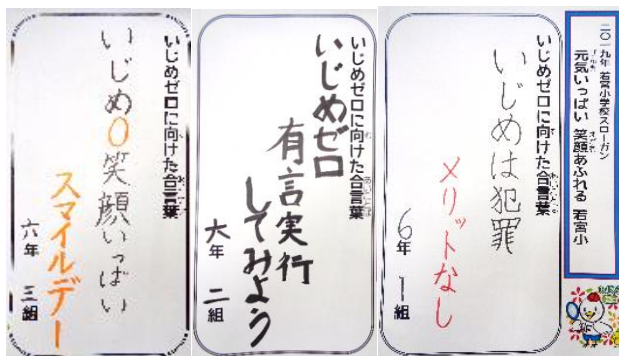 二〇一九年 若宮小学校スローガン
元気いっぱい 笑顔あふれる 若宮小
いじめゼロに向けた合言葉
いじめは犯罪
メリットなし
6年 1組
いじめゼロに向けた合言葉
いじめゼロ
有言実行
してみよう
六年 二組
いじめゼロに向けた合言葉
いじめ0笑顔いっぱい
スマイルデー
六年 三組